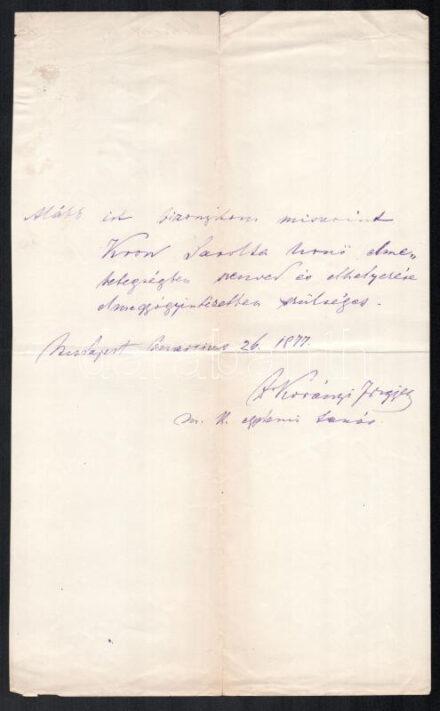 Alább irt bizonyitom miszerint
Kron Sarolta nevü elme-
betegségben szenved és elhelyezése
elmegyógyintézetben szükséges.
Budapest 26. 1877.
Dr Korányi Frigyes
m. k. egyetemi tanár